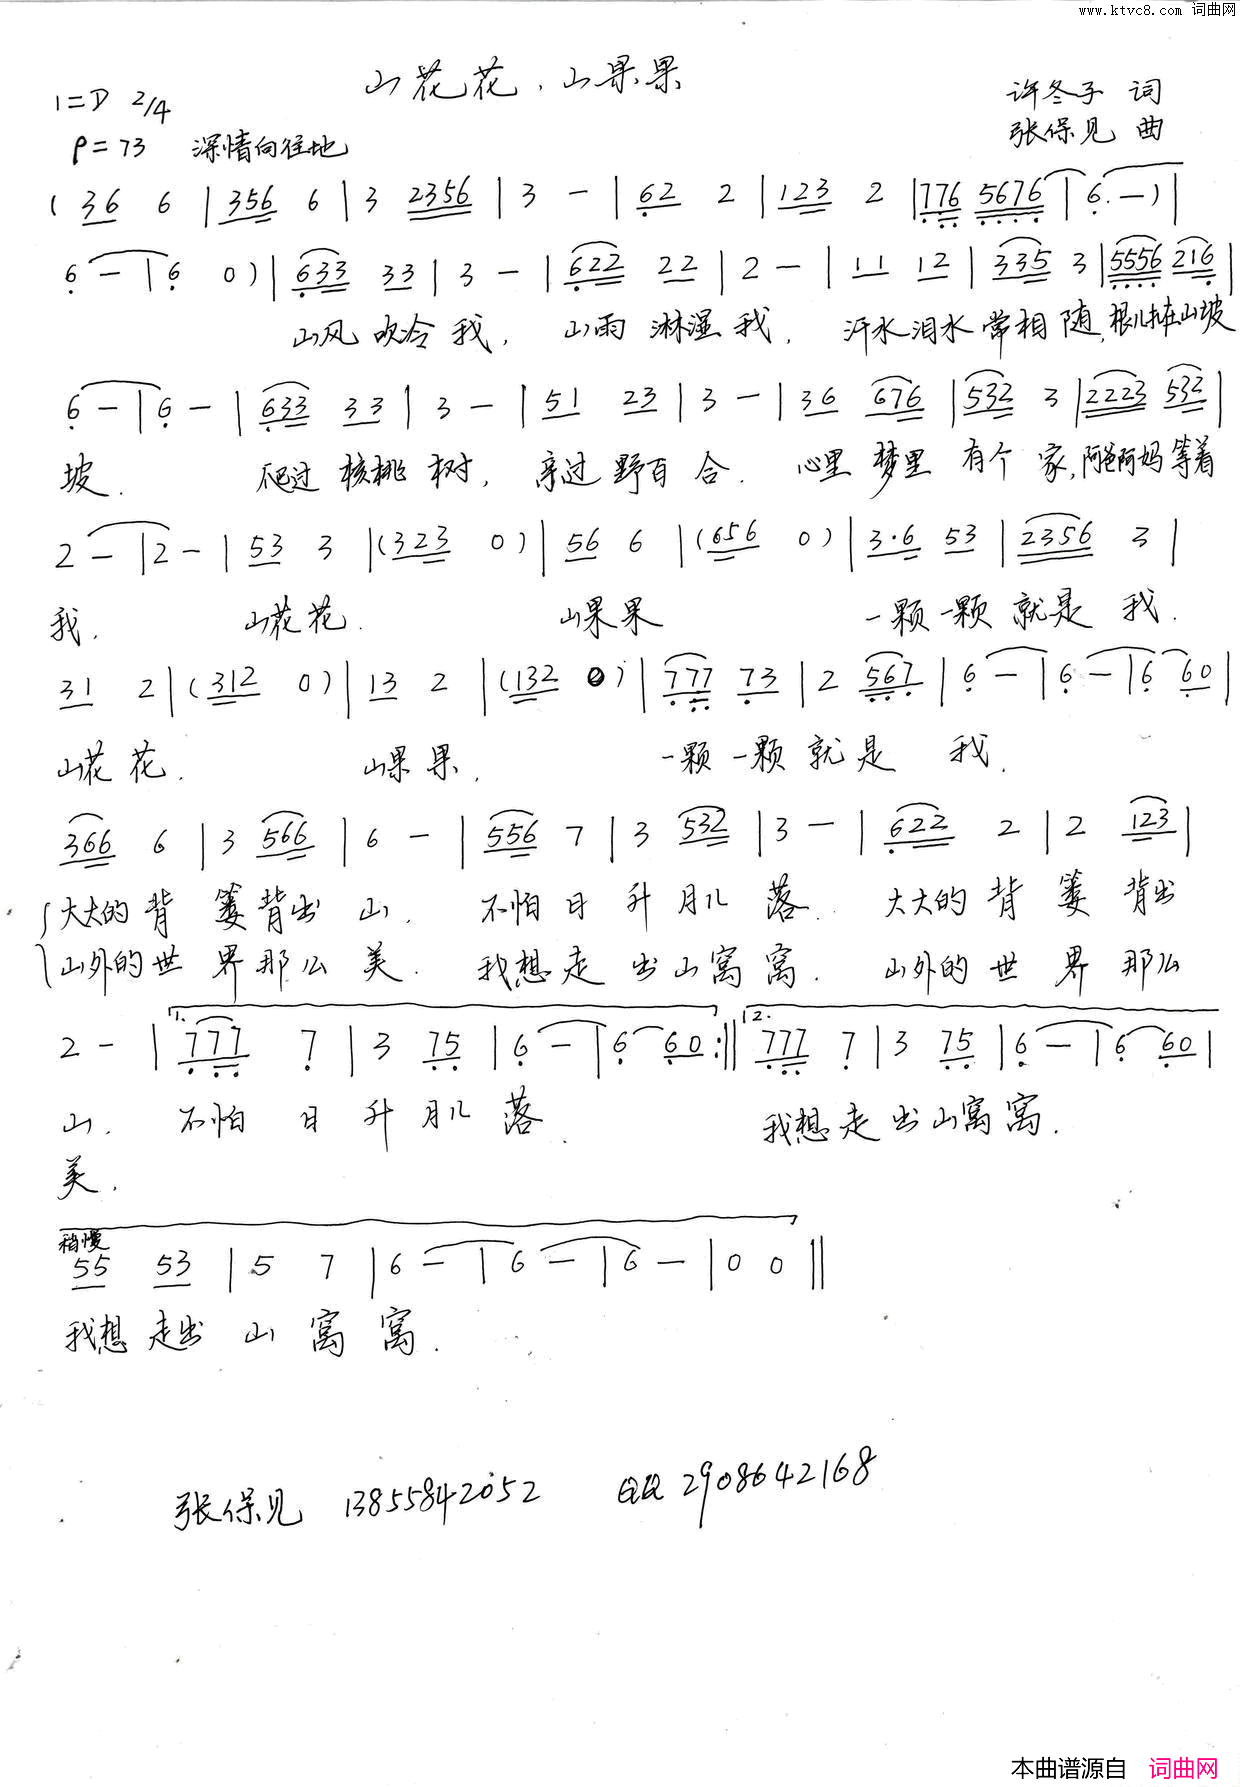 www.ktvc8.com 词曲网
山花花、山果果
1=D 2/4
许冬子 词
♩=73 深情向往地
张保见 曲
( 36 6 | 356 6 | 3 2356 | 3 - | 62 2 | 123 2 | 776 5676 | 6 - ) |
6 - | 6 0 ) | 633 33 | 3 - | 622 22 | 2 - | 11 12 | 335 3 | 5556 216 |
山风 吹冷 我, 山雨 淋湿 我, 汗水泪水 常相 随,根儿扎在山坡
6 - | 6 - | 633 33 | 3 - | 51 23 | 3 - | 36 676 | 532 3 | 2223 532 |
坡. 爬过 核桃 树, 亲过 野百 合. 心里 梦里 有个 家,阿爸阿妈 等着
2 - | 2 - | 53 3 | (323 0) | 56 6 | (656 0) | 3·6 53 | 2356 3 |
我. 山花花. 山果果 一颗 一颗 就是 我.
31 2 | (312 0) | 13 2 | (132 0) | 777 73 | 2 567 | 6 - | 6 - | 6 60 |
山花 花. 山果 果, 一颗 一颗 就是 我.
366 6 | 3 566 | 6 - | 556 7 | 3 532 | 3 - | 622 2 | 2 123 |
大大的 背 篓 背出 山. 不怕 日 升 月儿 落. 大大的 背 篓 背出
山外的 世 界 那么 美. 我想 走 出 山窝 窝. 山外的 世 界 那么
2 - | 1. 777 7 | 3 75 | 6 - | 6 60 :|| 2. 777 7 | 3 75 | 6 - | 6 60 |
山. 不怕 日 升 月儿 落. 我想 走 出 山窝 窝.
美.
稍慢
55 53 | 5 7 | 6 - | 6 - | 6 - | 0 0 ||
我想 走出 山 窝 窝.
张保见 13855842052 QQ 2908642168
本曲谱源自 词曲网